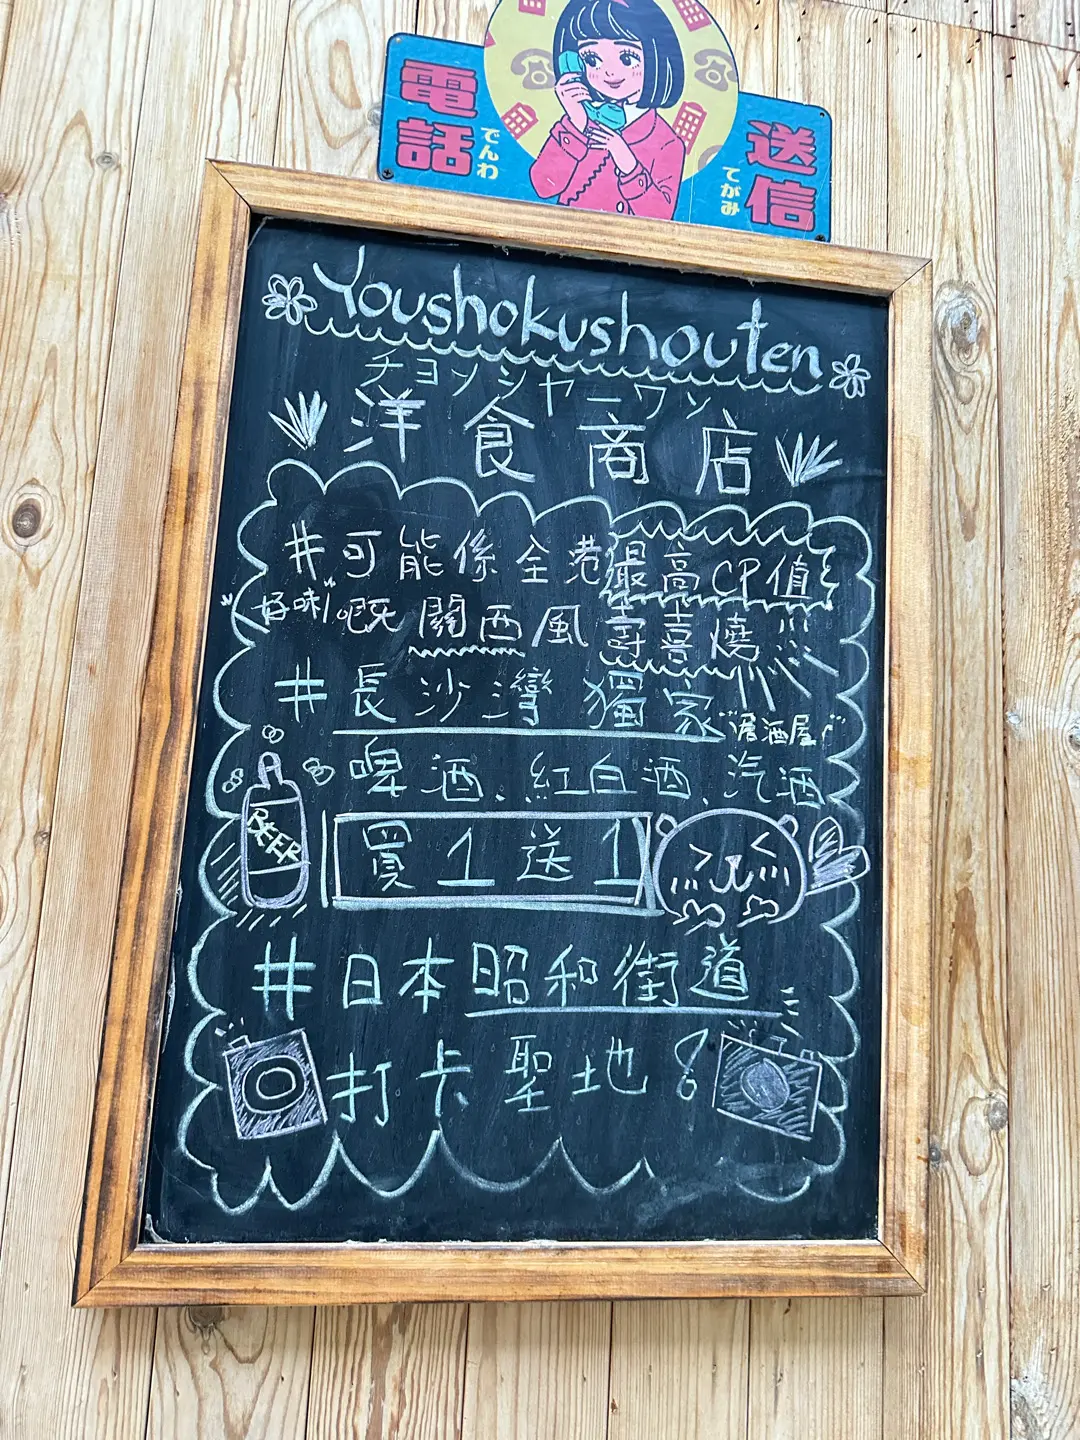 電話
でんわ
送信
てがみ
Youshokushouten
チョンシャーワン
洋食商店
#可能係全港最高CP值
"好味"嘅 關西風壽喜燒
#長沙灣獨家"居酒屋"
啤酒、紅白酒、汽酒
BEER
買1送1
#日本昭和街道
打卡聖地!